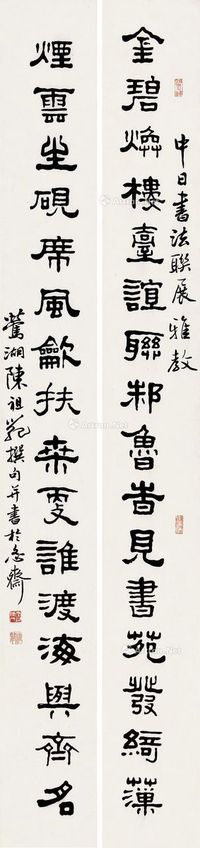 金碧煥樓臺誼聯邾魯皆見書苑發綺藻
中日書法聯展 雅教
煙雲生硯席風歙扶桑更誰渡海與齊名
鶯湖陳祖範撰句并書於 齋